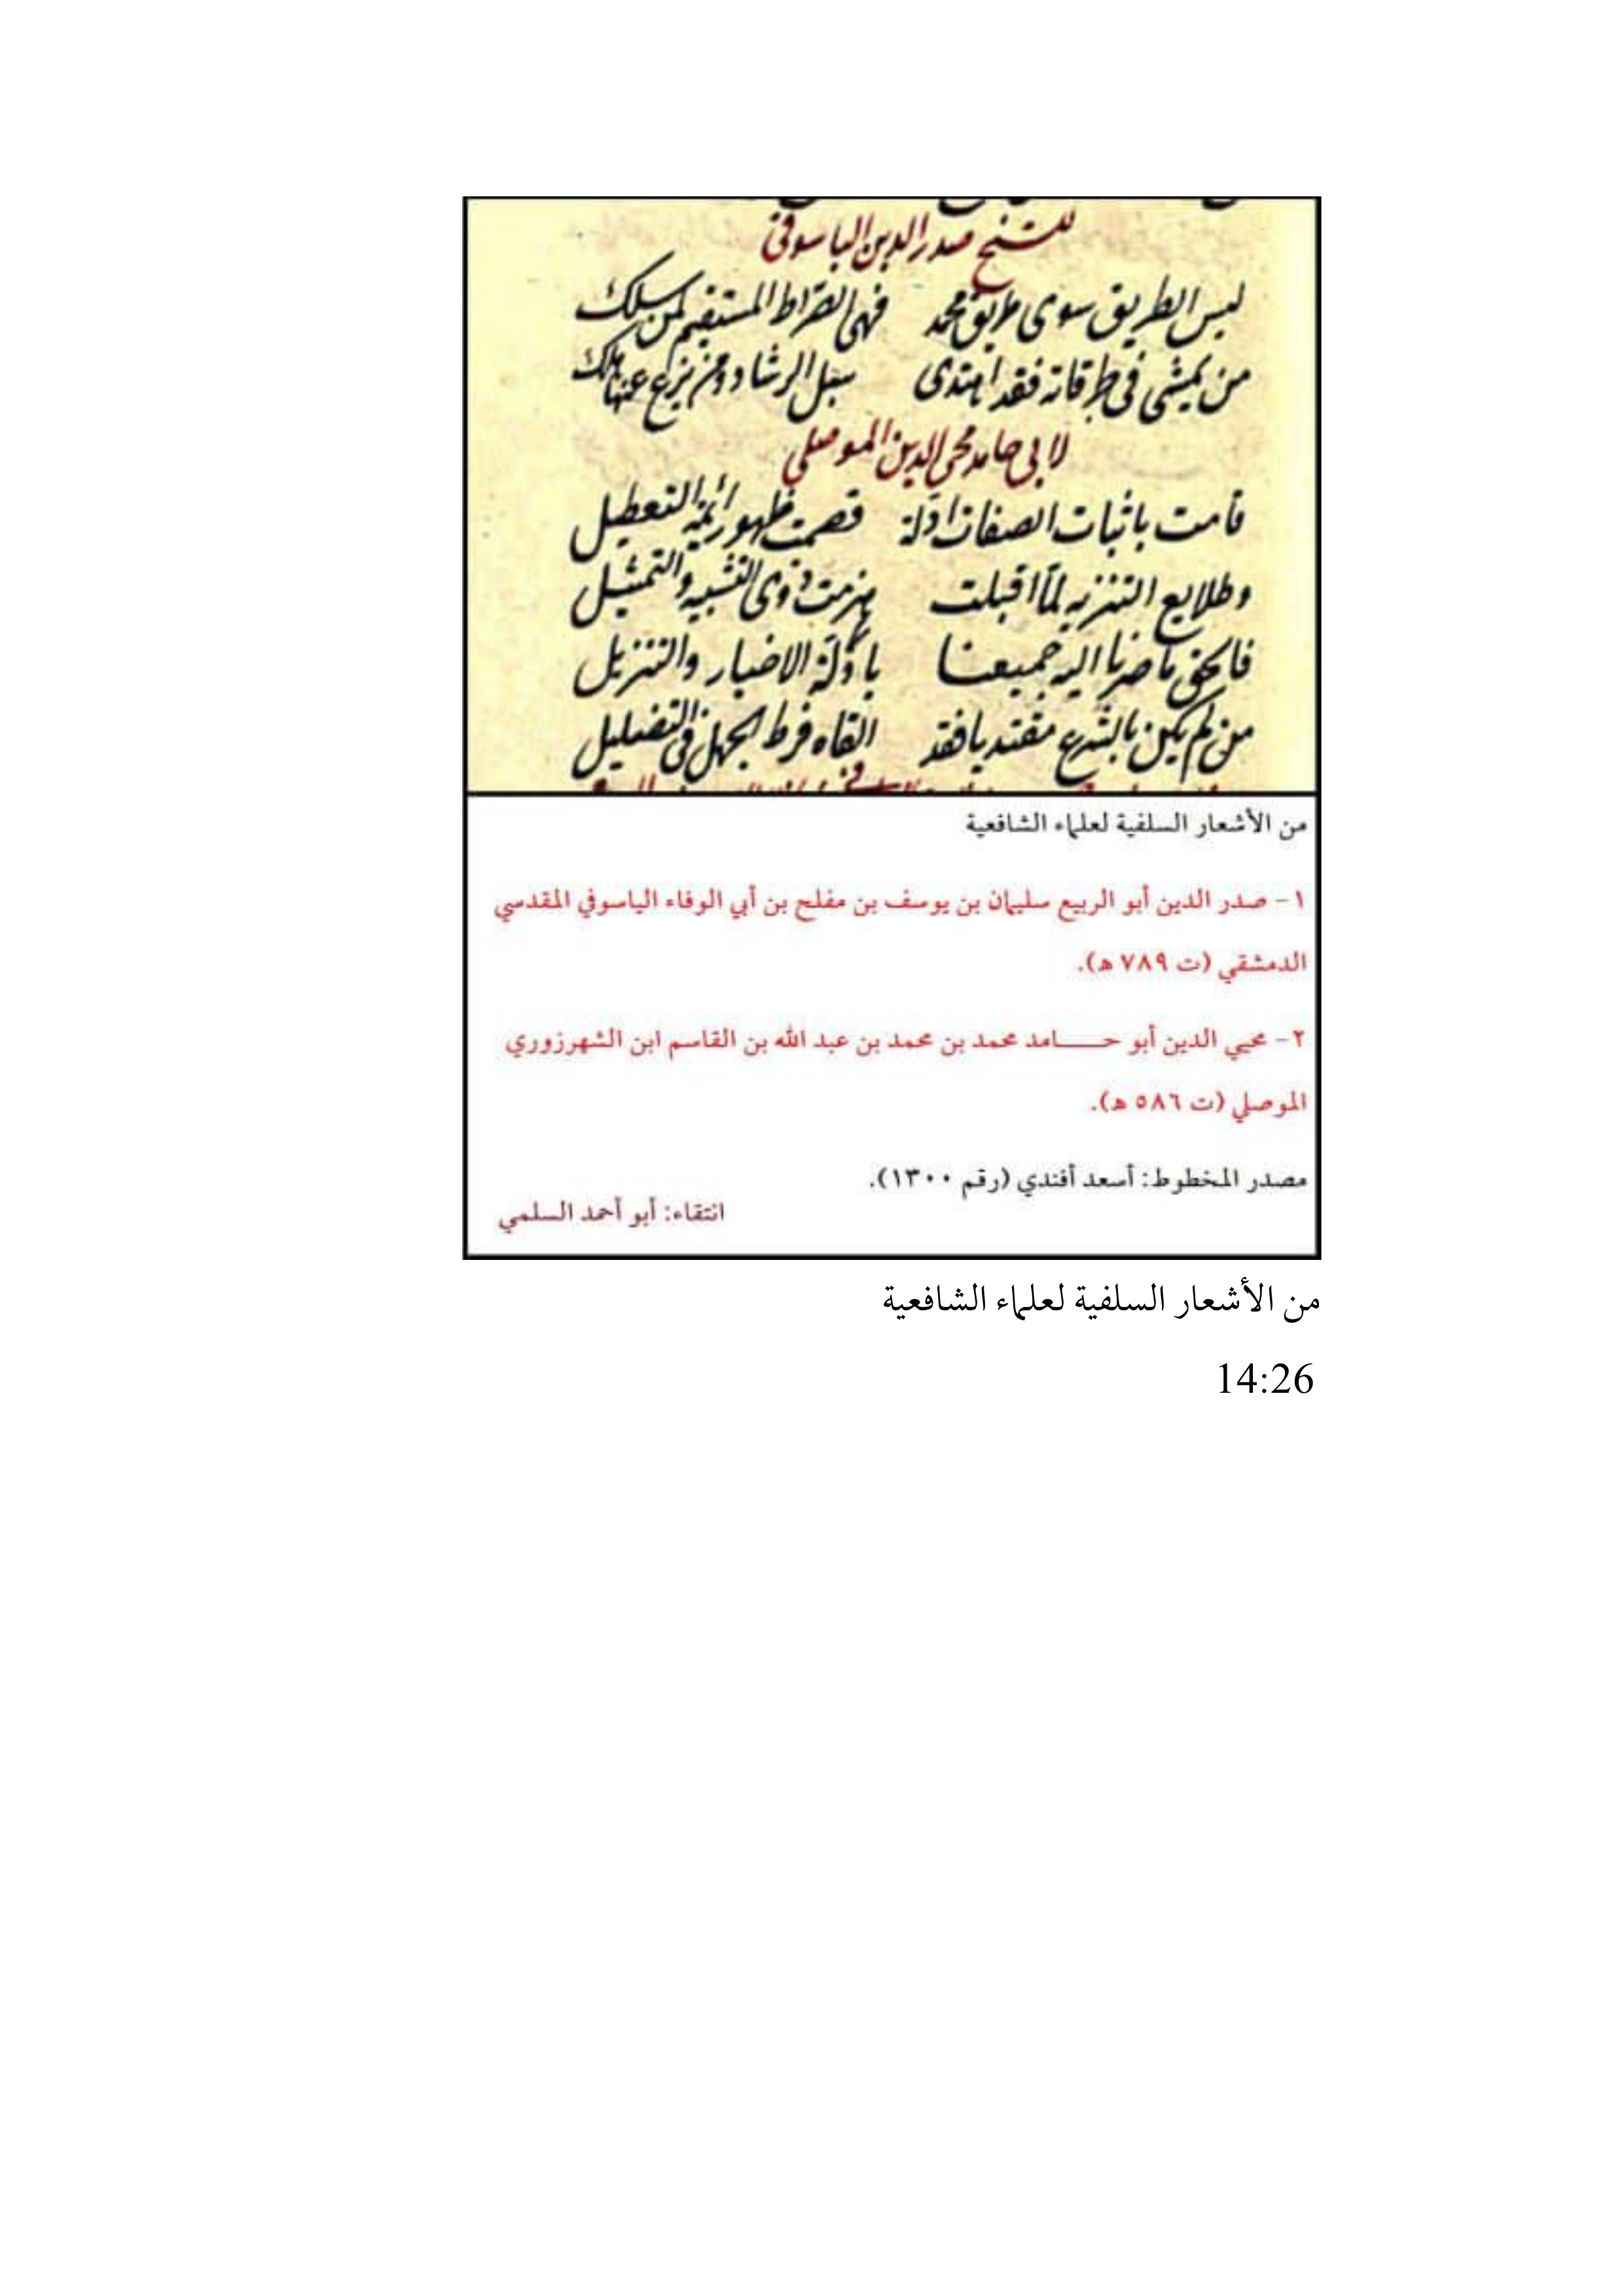 للشيخ صدر الدين الياسوفي
ليس الطريق سوى طريق محمد فهي الصراط المستقيم لمن سلك
من يمشي في طرقاته فقد اهتدى سبل الرشاد ومن يزغ عنها هلك
لابي حامد محي الدين الموصلي
قامت باثبات الصفات ادلة قصمت ظهور ائمة التعطيل
وطلايع التنزيه لمّا اقبلت هزمت ذوى التشبيه والتمثيل
فالحق ما صرنا اليه جميعنا بادلّة الاخبار والتنزيل
من لم يكن بالشرع مقتديا فقد القاه فرط الجهل في التضليل
من الأشعار السلفية لعلماء الشافعية
١- صدر الدين أبو الربيع سليمان بن يوسف بن مفلح بن أبي الوفاء الياسوفي المقدسي
الدمشقي (ت ٧٨٩ هـ).
٢- محيي الدين أبو حـــامد محمد بن محمد بن عبد الله بن القاسم ابن الشهرزوري
الموصلي (ت ٥٨٦ هـ).
مصدر المخطوط: أسعد أفندي (رقم ١٣٠٠).
انتقاء: أبو أحمد السلمي
من الأشعار السلفية لعلماء الشافعية
14:26